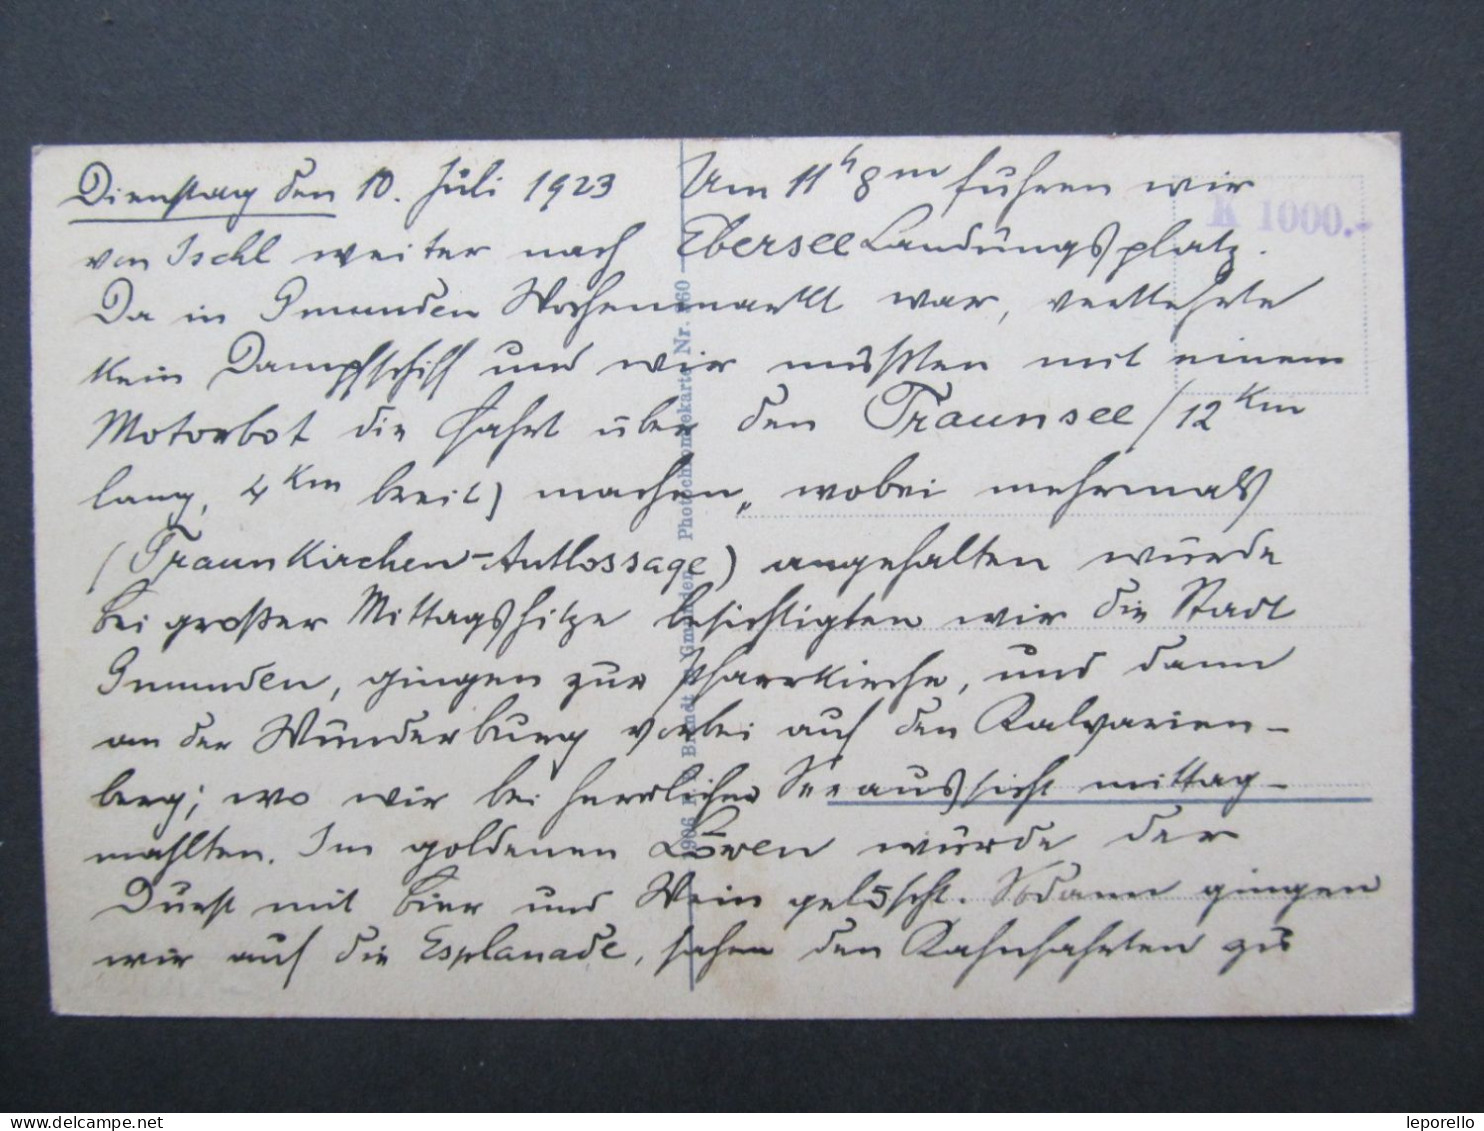 Dienstag den 10. Juli 1923 Um 11h 8m fuhren wir
K 1000.-
von Ischl weiter nach Ebersee Landungsplatz.
Da in Gmunden Wochenmarkt war, verkehrte
kein Dampfschiff und wir mußten mit einem
Motorbot die Fahrt über den Traunsee (12 Km
lang, 4 Km breit) machen, wobei mehrmals
(Traunkirchen-Autlossage) angehalten wurde
Bei großer Mittagshitze besichtigten wir die Stadt
Gmunden, gingen zur Pfarrkirche, und dann
an der Wunderburg vorbei auf den Kalvarien-
berg; wo wir bei herrlicher Seeaussicht mittag-
mahlten. Im goldenen Löwen wurde der
Durst mit Bier und Wein gelöscht. Sodann gingen
wir auf die Esplanade, sahen den Kahnfahrten zu
1906 Brandt Gmunden Photochromiekarte Nr. 260
leporello